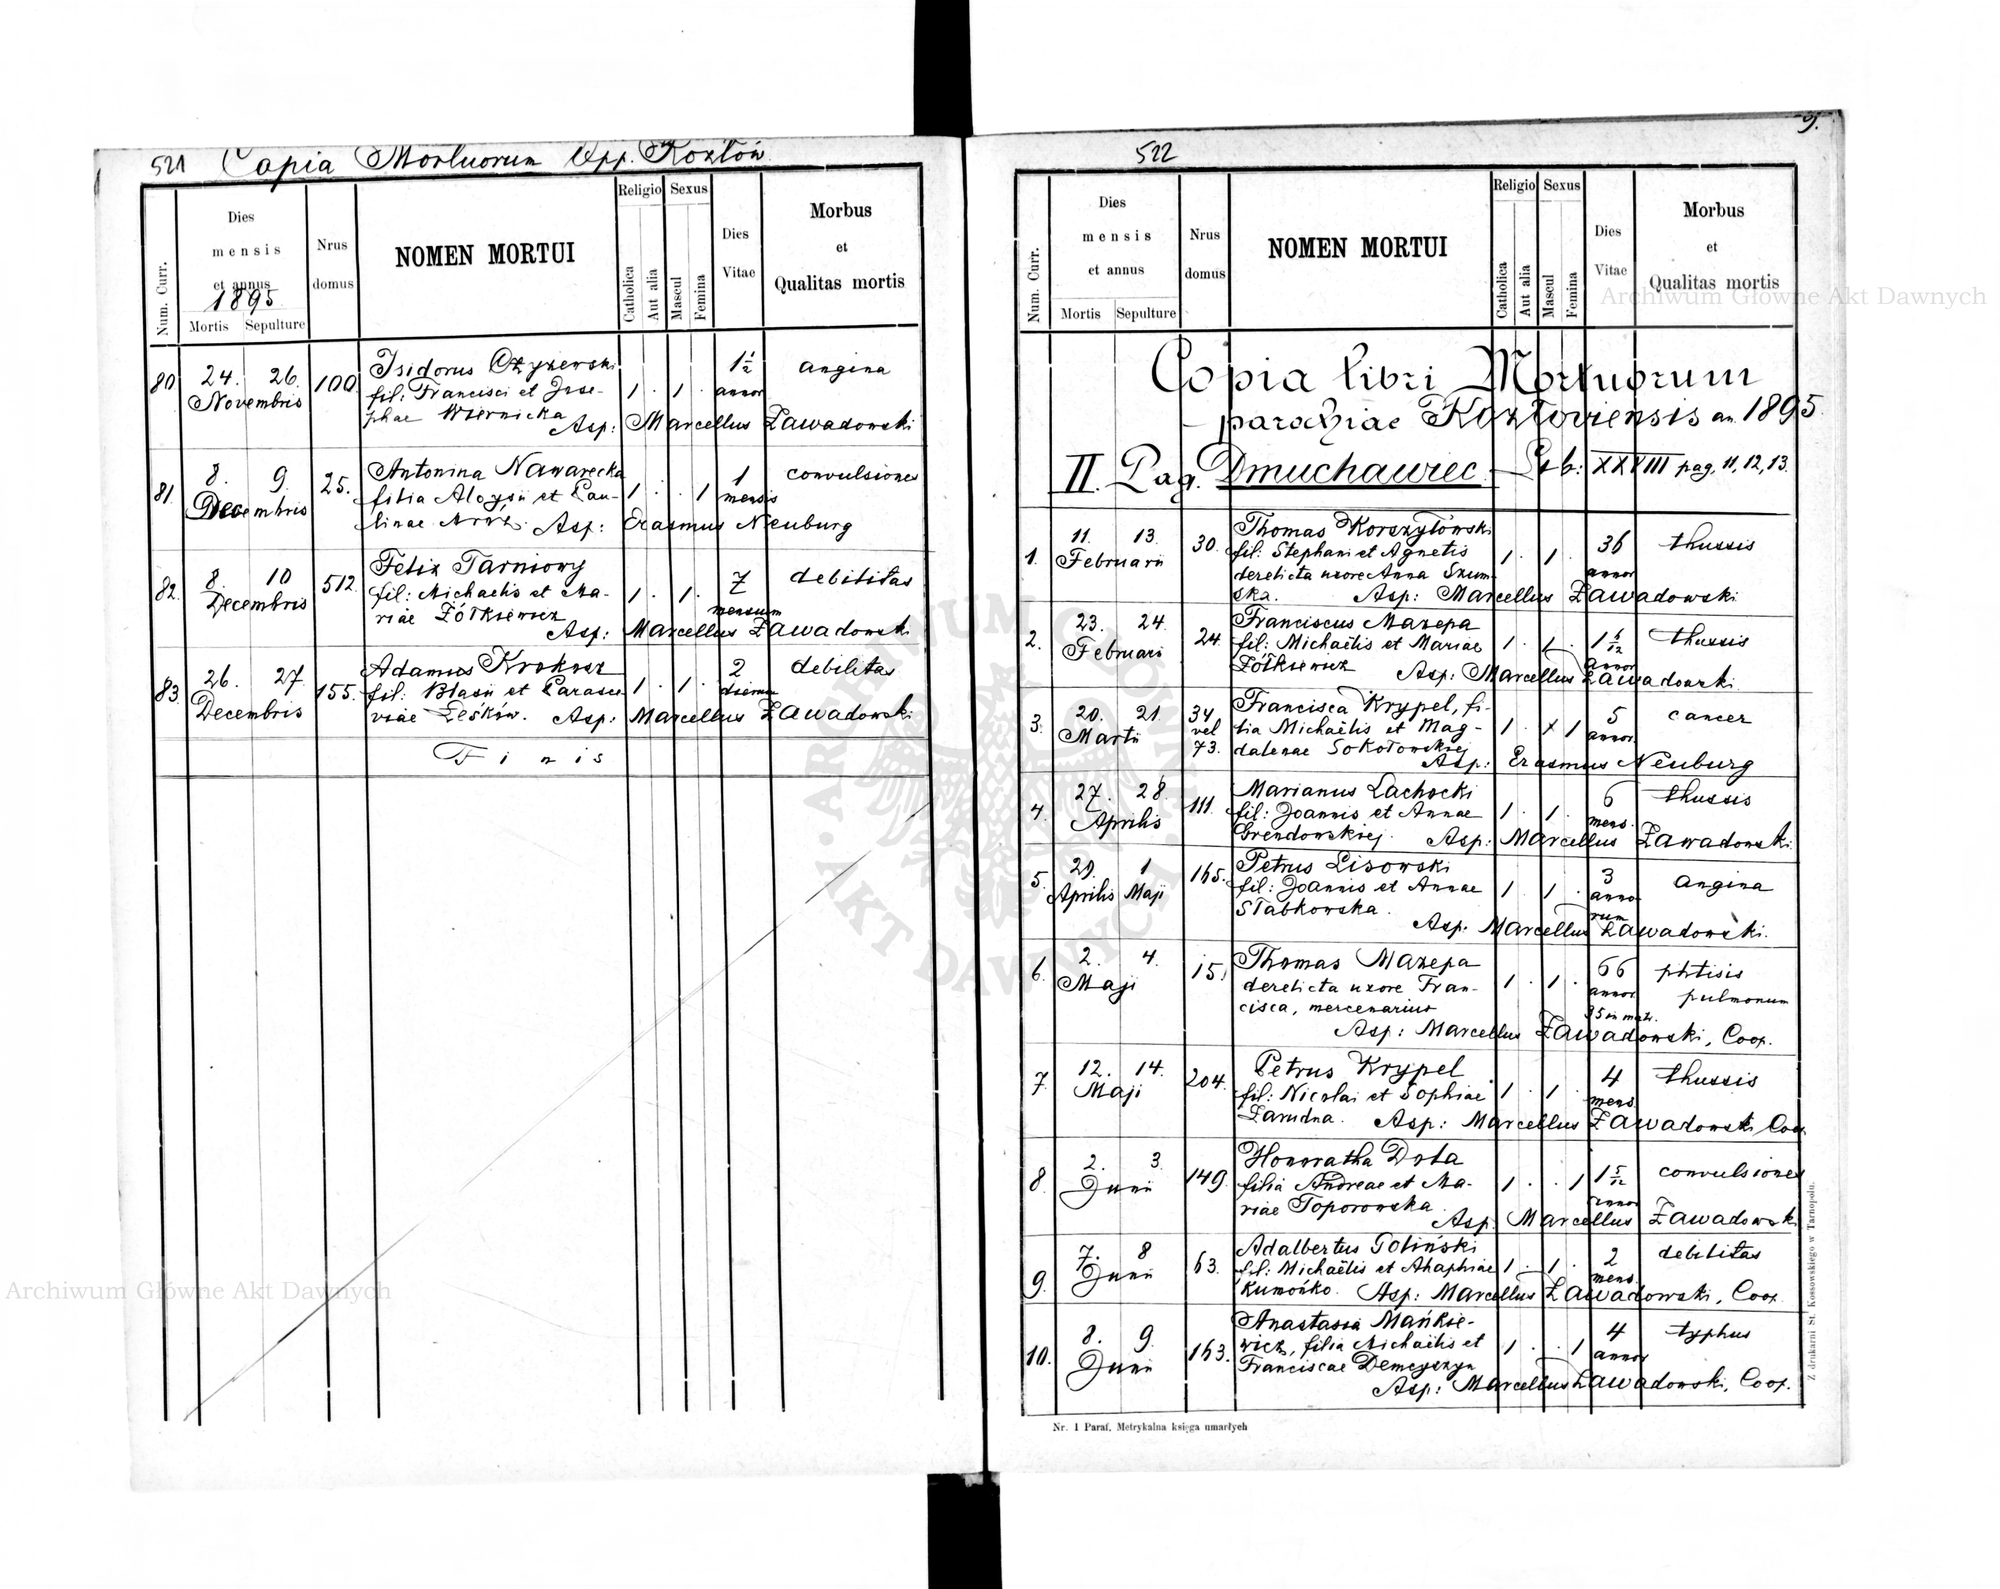 521 Copia Mortuorum Opp. Kozłów
Num. Curr.
Dies
mensis
et annus
1895.
Mortis Sepulture
Nrus
domus
NOMEN MORTUI
Religio
Catholica
Aut alia
Sexus
Mascul
Femina
Dies
Vitae
Morbus
et
Qualitas mortis
80 24. 26. Novembris 100 Isidorus Czyżewski 1 . 1 . 1 1/2 annor angina
fil: Francisci et Jose-
phae Wiernicka Asp: Marcellus Zawadowski
81. 8. 9. Decembris 25. Antonina Nawarecka 1 . . 1 1 mensis convulsiones
filia Aloysii et Pau-
linae Asp: Erasmus Neuburg
82. 8. 10 Decembris 512. Felix Tarniowy 1 . 1 . 7 mensum debilitas
fil: Michaelis et Ma-
riae Żółkiewicz
Asp: Marcellus Zawadowski
83. 26. 27. Decembris 155. Adamus Krokosz 1 . 1 . 2 dierum debilitas
fil: Blasii et Parasce
viae Leśków. Asp: Marcellus Zawadowski
Finis
522
Num. Curr.
Dies
mensis
et annus
Mortis Sepulture
Nrus
domus
NOMEN MORTUI
Religio
Catholica
Aut alia
Sexus
Mascul
Femina
Dies
Vitae
Morbus
et
Qualitas mortis
Copia libri Mortuorum
parochiae Kozłoviensis an. 1895.
II. Pag. Dmuchawiec. XXVIII pag. 11, 12, 13.
1. 11. 13. Februarii 30. Thomas Korszyłowski 1 . 1 . 36 annor thussis
fil: Stephani et Agnetis
derelicta uxore Anna Szum-
ska. Asp: Marcellus Zawadowski
2. 23. 24. Februari 24. Franciscus Mazepa 1 . 1 . 1 6/12 annor thussis
fil: Michaëlis et Mariae
Żółkiewicz Asp: Marcellus Zawadowski
3. 20. 21. Martii 34 vel 73. Francisca Krypel, fi- 1 . x 1 5 annor. cancer
lia Michaëlis et Mag-
dalenae Sokołowskiej
Asp: Erasmus Neuburg
4. 27. 28. Aprilis 111. Marianus Lachocki 1 . 1 . 6 mens. thussis
fil: Joannis et Annae
Grendowskiej. Asp: Marcellus Zawadowski.
5. 29. 1 Aprilis Maji 165. Petrus Lisowski 1 . 1 . 3 anno rum angina
fil: Joannis et Annae
Słabkowska.
Asp: Marcellus Zawadowski.
6. 2. 4. Maji 15 Thomas Mazepa 1 . 1 . 66 annor. phtisis
derelicta uxore Fran- pulmonum
cisca, mercenarius
Asp: Marcellus Zawadowski, Coop.
7. 12. 14. Maji 204. Petrus Krypel 1 . 1 . 4 mens. thussis
fil: Nicolai et Sophiae
Zarudna. Asp: Marcellus Zawadowski Coop.
8. 2. 3. Junii 149. Honoratha Dola 1 . . 1 1 5/12 annor convulsiones
filia Andreae et Ma-
riae Toporowska.
Asp. Marcellus Zawadowski
9. 7. 8 Junii 63. Adalbertus Goliński 1 . 1 . 2 mens. debilitas
fil: Michaëlis et Ahaphiae
Kumońko. Asp: Marcellus Zawadowski, Coop.
10. 8. 9. Junii 163. Anastasia Mańkie- 1 . . 1 4 annor typhus
wicz, filia Michaëlis et
Franciscae Demczyszyn
Asp: Marcellus Zawadowski, Coop.
Nr. 1 Paraf. Metrykalna księga umarłych
Z drukarni St. Kossowskiego w Tarnopolu.
Archiwum Główne Akt Dawnych
Archiwum Główne Akt Dawnych
ARCHIWUM GŁÓWNE · AKT DAWNYCH ·